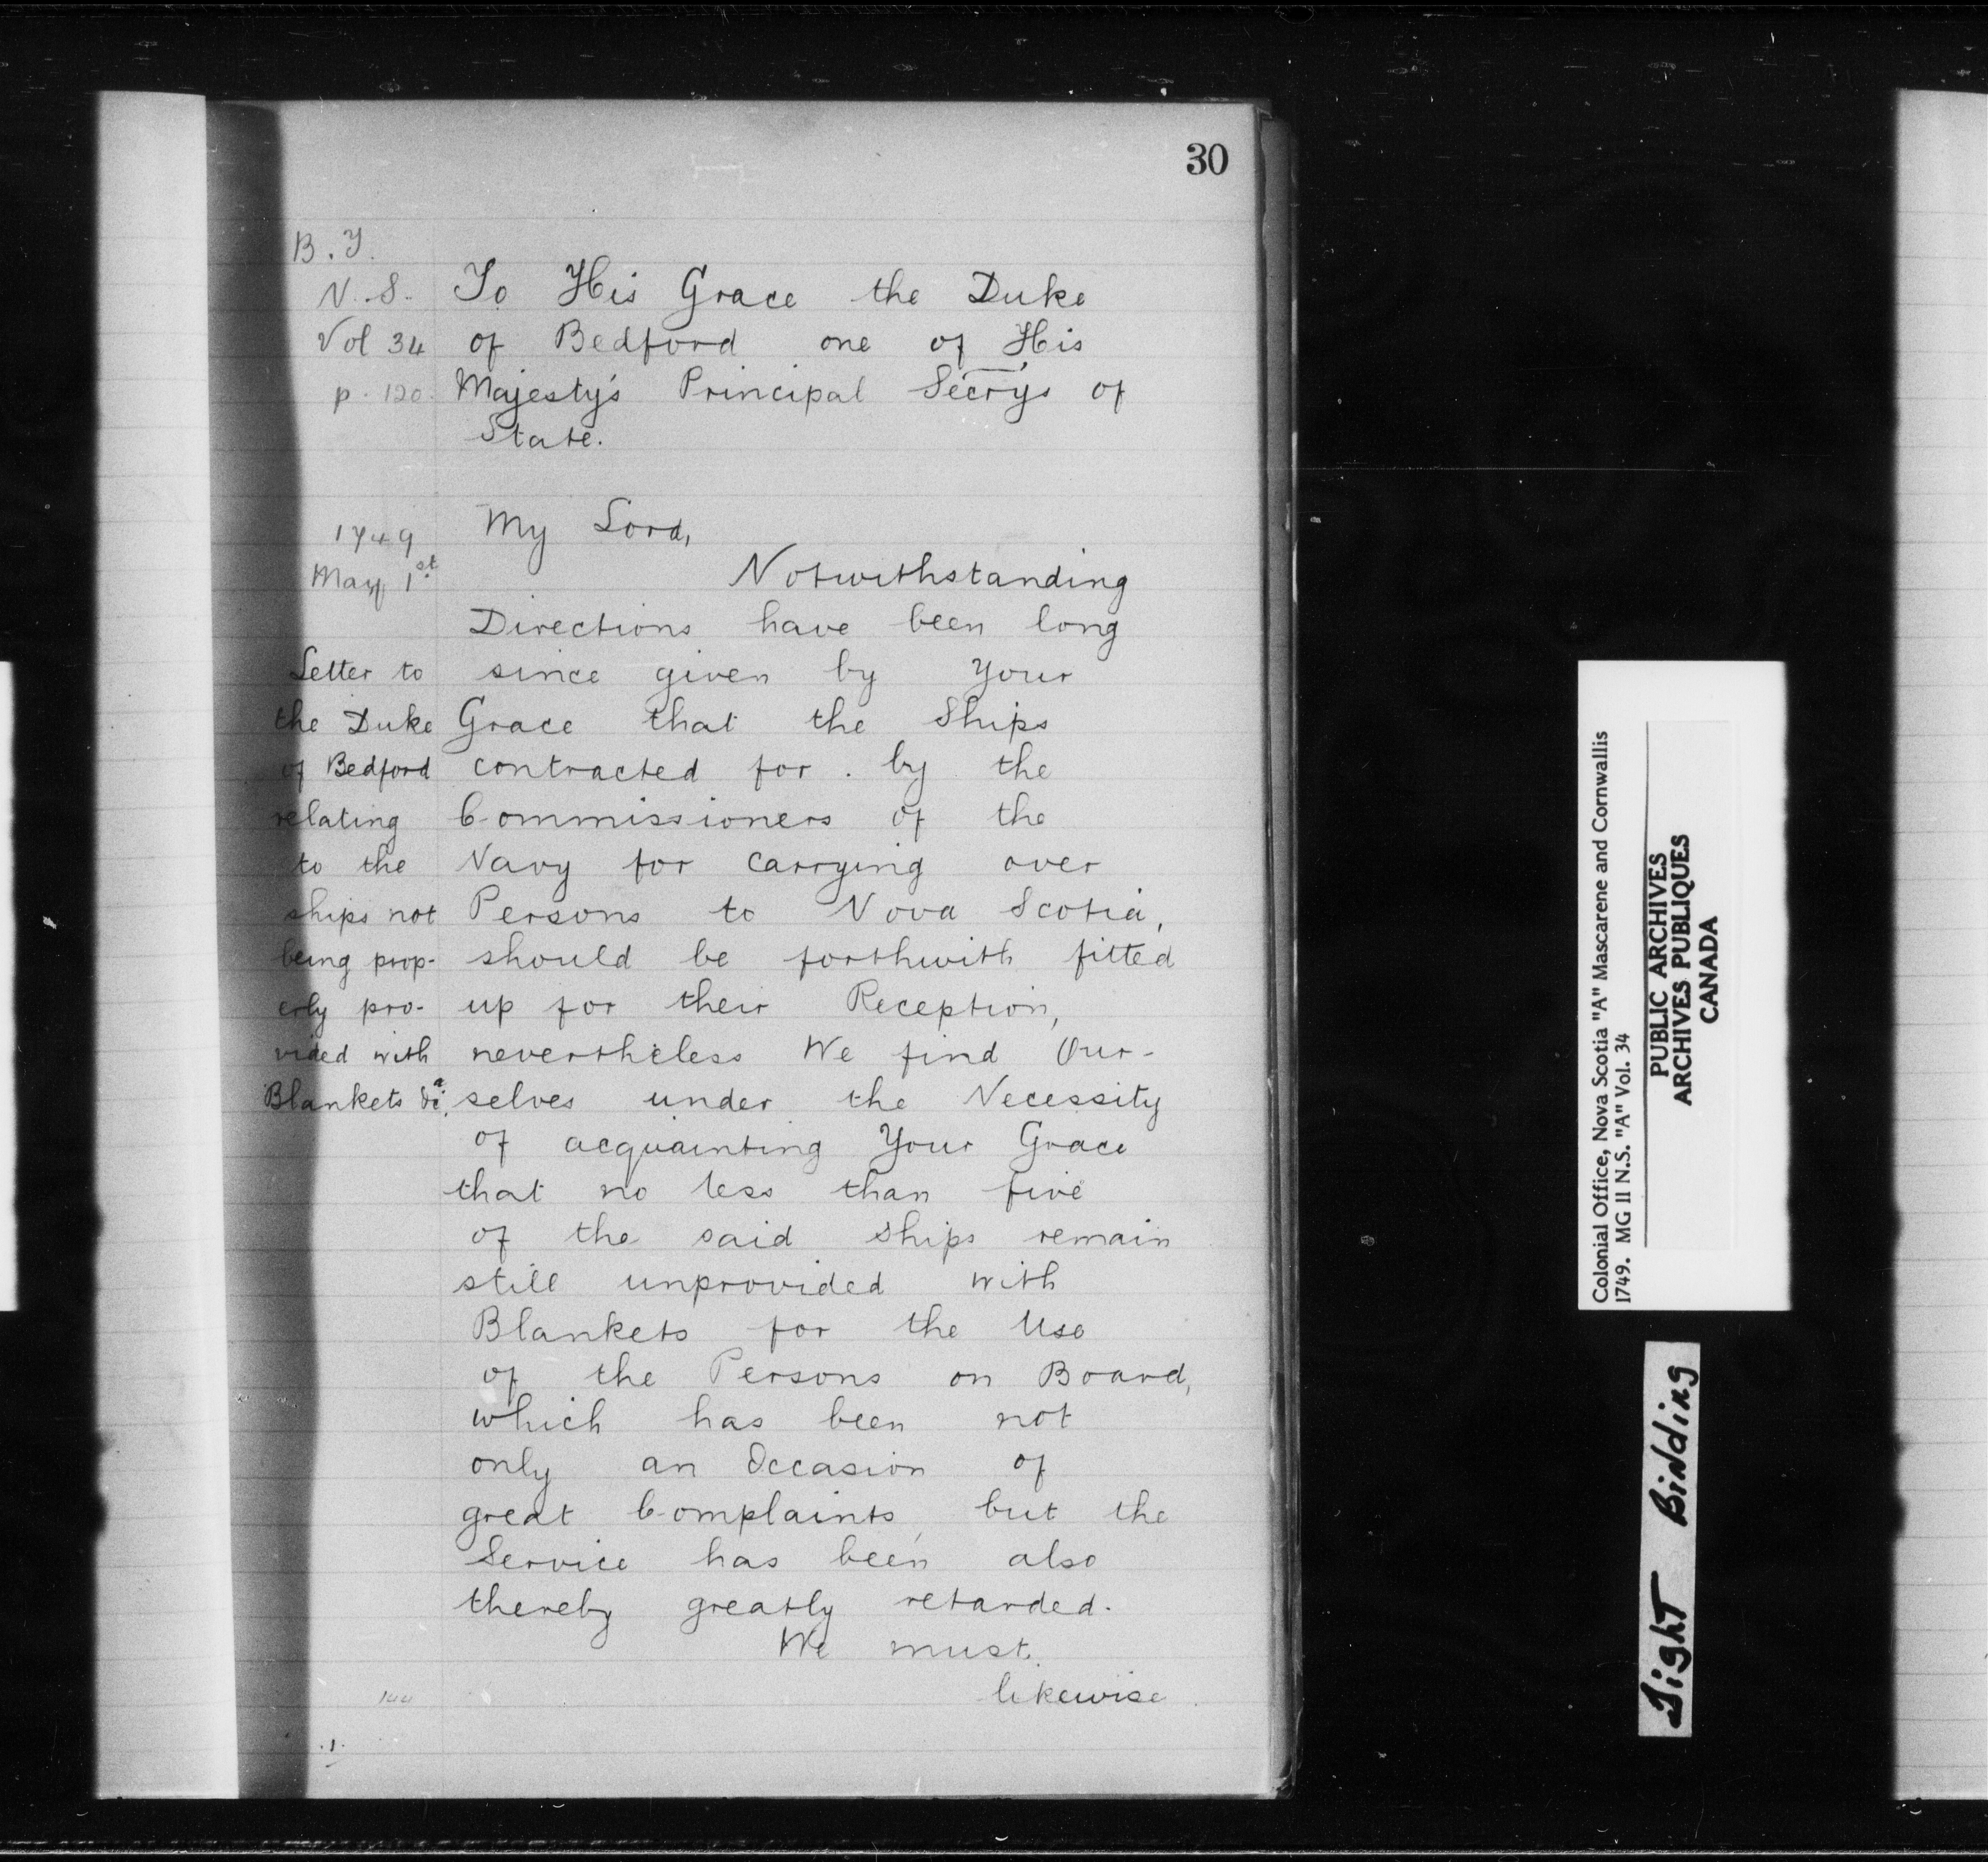 30
B. T.
N. S.
Vol 34
p. 120
To His Grace the Duke
of Bedford one of His
Majesty's Principal Secrys of
State.
1749
May 1st
My Lord,
Notwithstanding
Directions have been long
since given by Your
Grace that the Ships
contracted for by the
Commissioners of the
Navy for carrying over
Persons to Nova Scotia,
should be forthwith fitted
up for their Reception,
nevertheless We find Our-
selves under the Necessity
of acquainting Your Grace
that no less than five
of the said ships remain
still unprovided with
Blankets for the Use
of the Persons on Board,
which has been not
only an Occasion of
great Complaints, but the
Service has been also
thereby greatly retarded.
We must
likewise
Letter to
the Duke
of Bedford
relating
to the
ships not
being prop-
erly pro-
vided with
Blankets &ca.
144
.1.
Colonial Office, Nova Scotia "A" Mascarene and Cornwallis
1749. MG II N.S. "A" Vol. 34
PUBLIC ARCHIVES
ARCHIVES PUBLIQUES
CANADA
Tight Binding